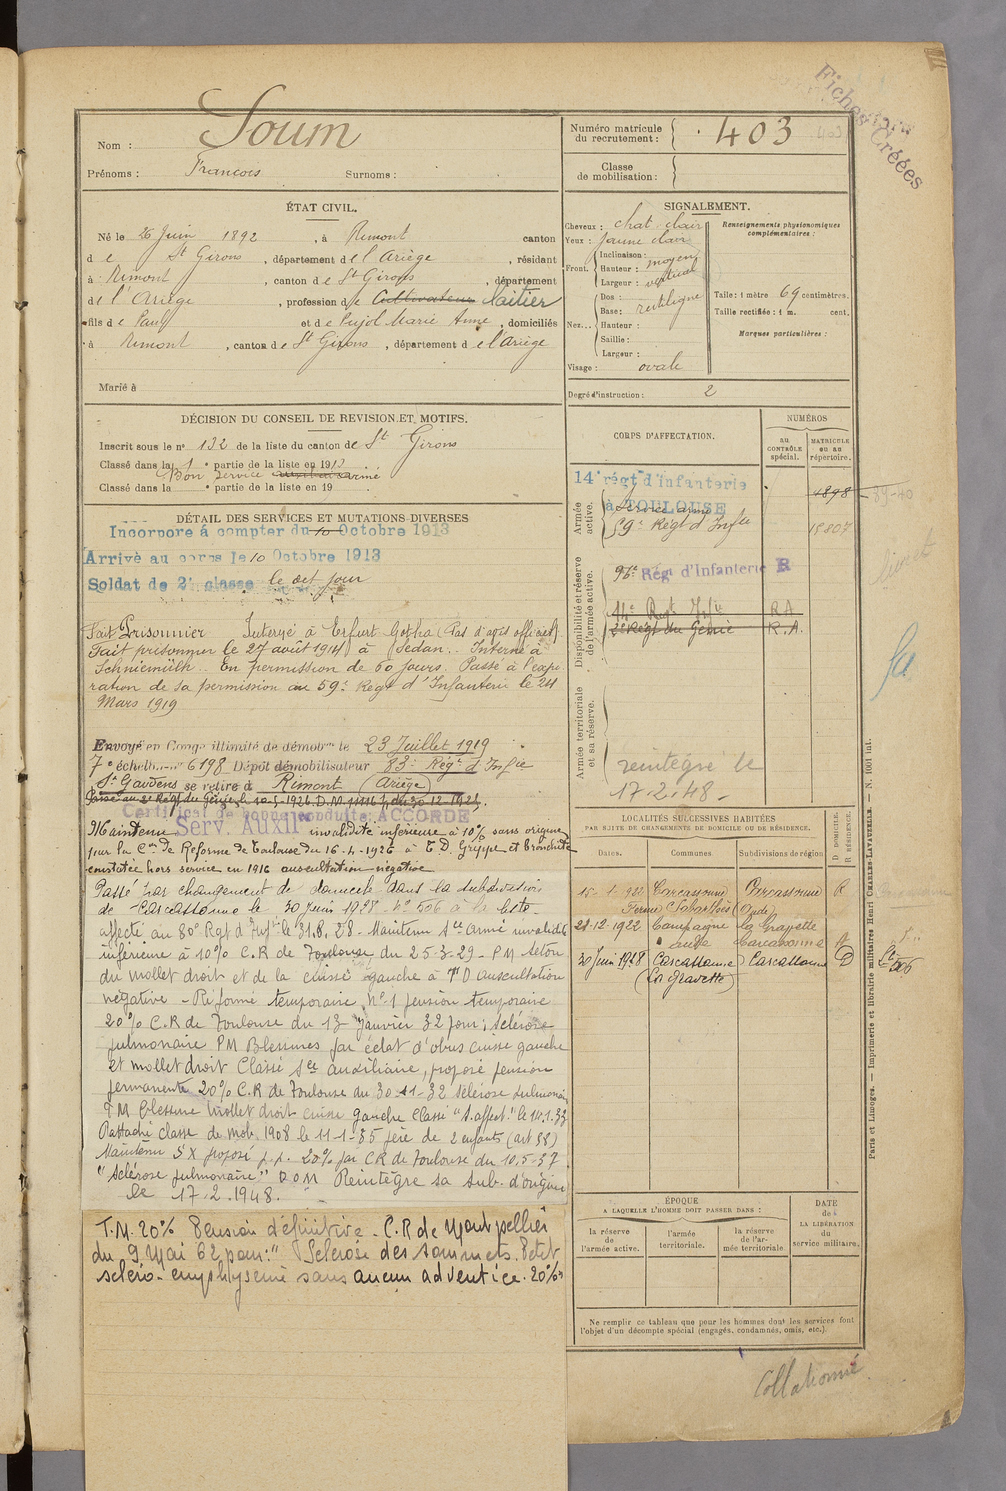 Fiches Créées
Nom : Soum
Prénoms : François Surnoms :
Numéro matricule du recrutement : 403
Classe de mobilisation :
ÉTAT CIVIL.
Né le 26 Juin 1892, à Rimont canton
d e St Girons, département de l'Ariège, résidant
à Rimont, canton de St Girons, département
de l'Ariège, profession de Cultivateur laitier
fils de Paul et de Pujol Marie Anne, domiciliés
à Rimont, canton de St Girons, département de l'Ariège
Marié à
SIGNALEMENT.
Cheveux : chat. clair
Yeux : jaune clair
Front. Inclinaison :
Hauteur : moyen
Largeur : vertical
Nez... Dos : rectiligne
Base :
Hauteur :
Saillie :
Largeur :
Visage : ovale
Renseignements physionomiques complémentaires :
Taille : 1 mètre 69 centimètres.
Taille rectifiée : 1 m. cent.
Marques particulières :
Degré d'instruction : 2
DÉCISION DU CONSEIL DE REVISION ET MOTIFS.
Inscrit sous le n° 132 de la liste du canton de St Girons
Classé dans la 1e partie de la liste en 1913
Bon service armé
Classé dans la e partie de la liste en 19
DÉTAIL DES SERVICES ET MUTATIONS DIVERSES
Incorporé à compter du 10 Octobre 1913
Arrivé au corps le 10 Octobre 1913
Soldat de 2e classe le dit jour
Fait Prisonnier Interné à Erfurt Gotha (Pas d'avis officiel)
Fait prisonnier le 27 août 1914 à Sedan. Interné à
Schniemülh. En permission de 60 jours. Passé à l'expi-
ration de sa permission au 59e Régt d'Infanterie le 24
Mars 1919
Envoyé en Congé illimité de démobon le 23 Juillet 1919
7e échelon n° 6198 Dépôt démobilisateur 83e Régt d'Infie
St Gaudens se retire à Rimont (Ariège)
Passé au 2e Régt du Génie le 10-5-1926. D.M.
Certificat de bonne conduite ACCORDÉ
Maintenu Serv. Auxil invalidité inférieure à 10% sans origine
par la Con de Réforme de Toulouse du 16-4-1926 à T.D. Grippe et bronchite
constatée hors service en 1916 auscultation négative
Passé par changement de domicile dans la subdivision
de Carcassonne le 30 juin 1928 - N° 506 à la liste
affecté au 80e Rgt d'Infie le 31.8.28 - Maintenu Sce armé invalidité
inférieure à 10% C.R de Toulouse du 25-3-29 - P M Séton
du mollet droit et de la cuisse gauche à T D auscultation
négative - Réformé temporaire n°1 pension temporaire
20% C.R de Toulouse du 13 Janvier 32 pour : sclérose
pulmonaire P M Blessures par éclat d'obus cuisse gauche
et mollet droit Classé Sce auxiliaire, proposé pension
permanente 20% C.R de Toulouse du 30-11-32 sclérose pulmonaire
P M blessure mollet droit cuisse gauche Classé "S.affect." le 10.1.33
Rattaché classe de mob. 1908 le 11-1-35 père de 2 enfants (art 58)
Maintenu S X proposé p.p. 20% par CR de Toulouse du 10.5-37
"sclérose pulmonaire." D O M Réintègre sa sub. d'origine
le 17.2.1948.
T.M. 20% Pension définitive. C.R de Montpellier
du 9 Mai 62 pour :" Sclérose des sommets. Petit
scléro-emphysème sans aucun adventice. 20%"
CORPS D'AFFECTATION.
NUMÉROS
AU CONTRÔLE spécial.
MATRICULE ou au répertoire.
Armée active.
14e régt d'infanterie à TOULOUSE 4898
Service armé
59e Régt d'Infie 15807
Disponibilité et réserve de l'armée active.
96e Régt d'Infanterie R
14e Régt Infie R A
2e Régt du Génie R.A.
Armée territoriale et sa réserve.
réintégré le
17.2.48.
LOCALITÉS SUCCESSIVES HABITÉES
PAR SUITE DE CHANGEMENTS DE DOMICILE OU DE RÉSIDENCE.
Dates. Communes. Subdivisions de région D DOMICILE. R RÉSIDENCE.
15-1-922 Carcassonne Carcassonne R
Ferme (Aude)
28-12-1922 Campagne la Grapette
Aude Carcassonne R
30 Juin 1928 Carcassonne Carcassonne D
(La Gravette)
506
ÉPOQUE
A LAQUELLE L'HOMME DOIT PASSER DANS :
la réserve de l'armée active. l'armée territoriale. la réserve de l'armée territoriale
DATE de la LIBÉRATION du service militaire.
Ne remplir ce tableau que pour les hommes dont les services font
l'objet d'un décompte spécial (engagés, condamnés, omis, etc.).
Paris et Limoges. — Imprimerie et librairie militaires Henri CHARLES-LAVAUZELLE. — N. 1001 int.
Collationné